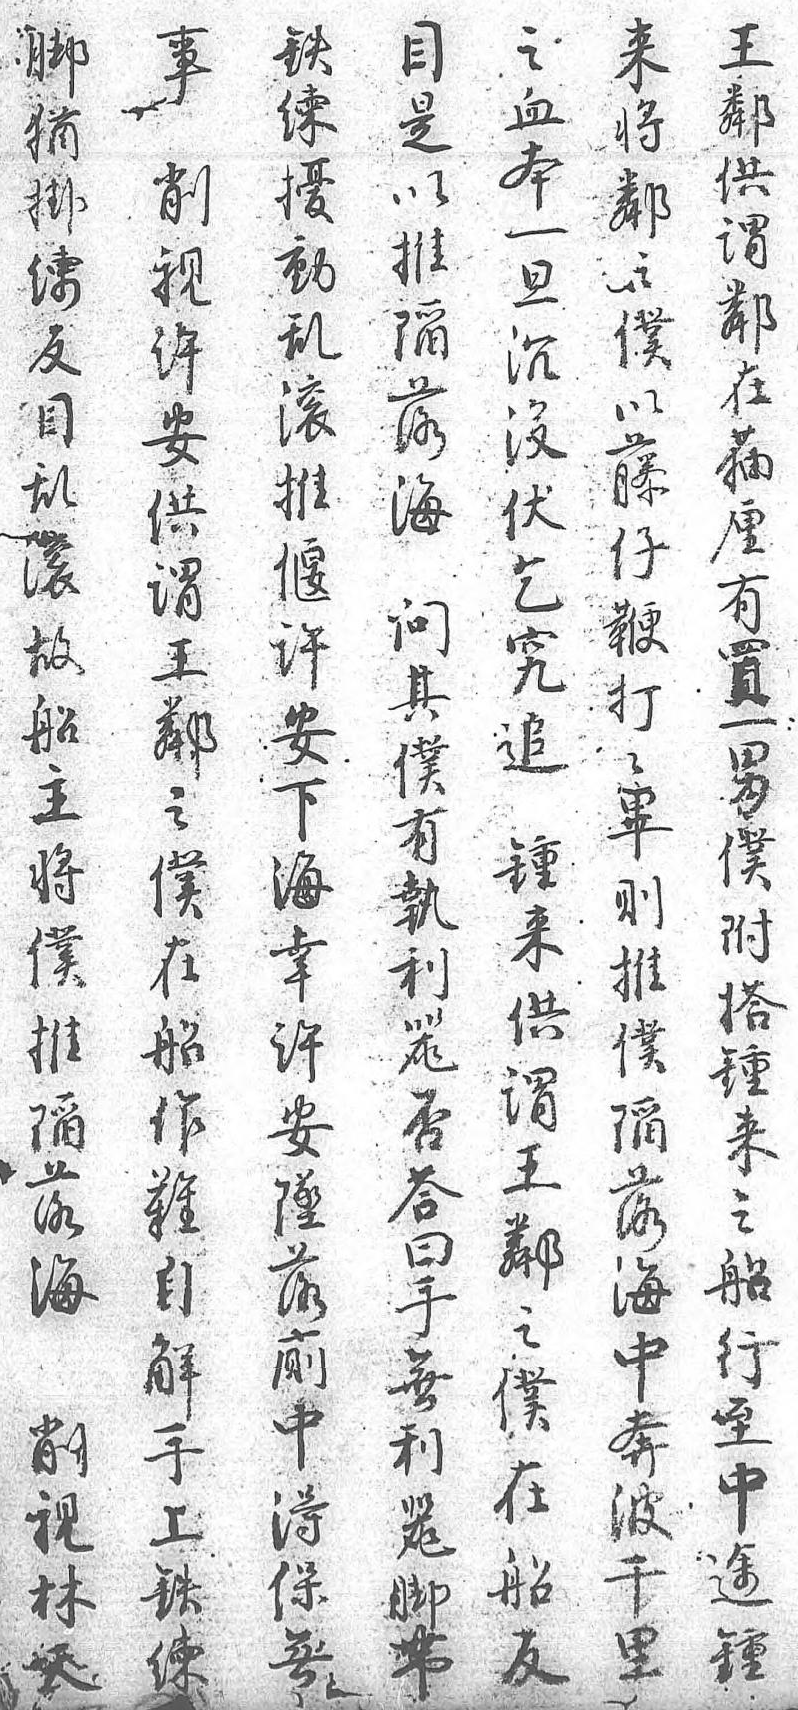 王鄰供謂鄰在貓厘有買一男僕附搭鍾来之船行至中途鍾
来将鄰之僕以藤仔鞭打之畢則推僕陷落海中奔波千里
之血本一旦沉没伏乞究追　鍾来供謂王鄰之僕在船反
目是以推陷落海　问其僕有執利噐否荅曰手無利噐脚帶
鉄練擾動乱滚推偃许安下海幸许安墜落廁中得保無
事　削视许安供謂王鄰之僕在船作難自解手上鉄練
脚猶掛練反目乱滚故船主将僕推陷落海　削视林